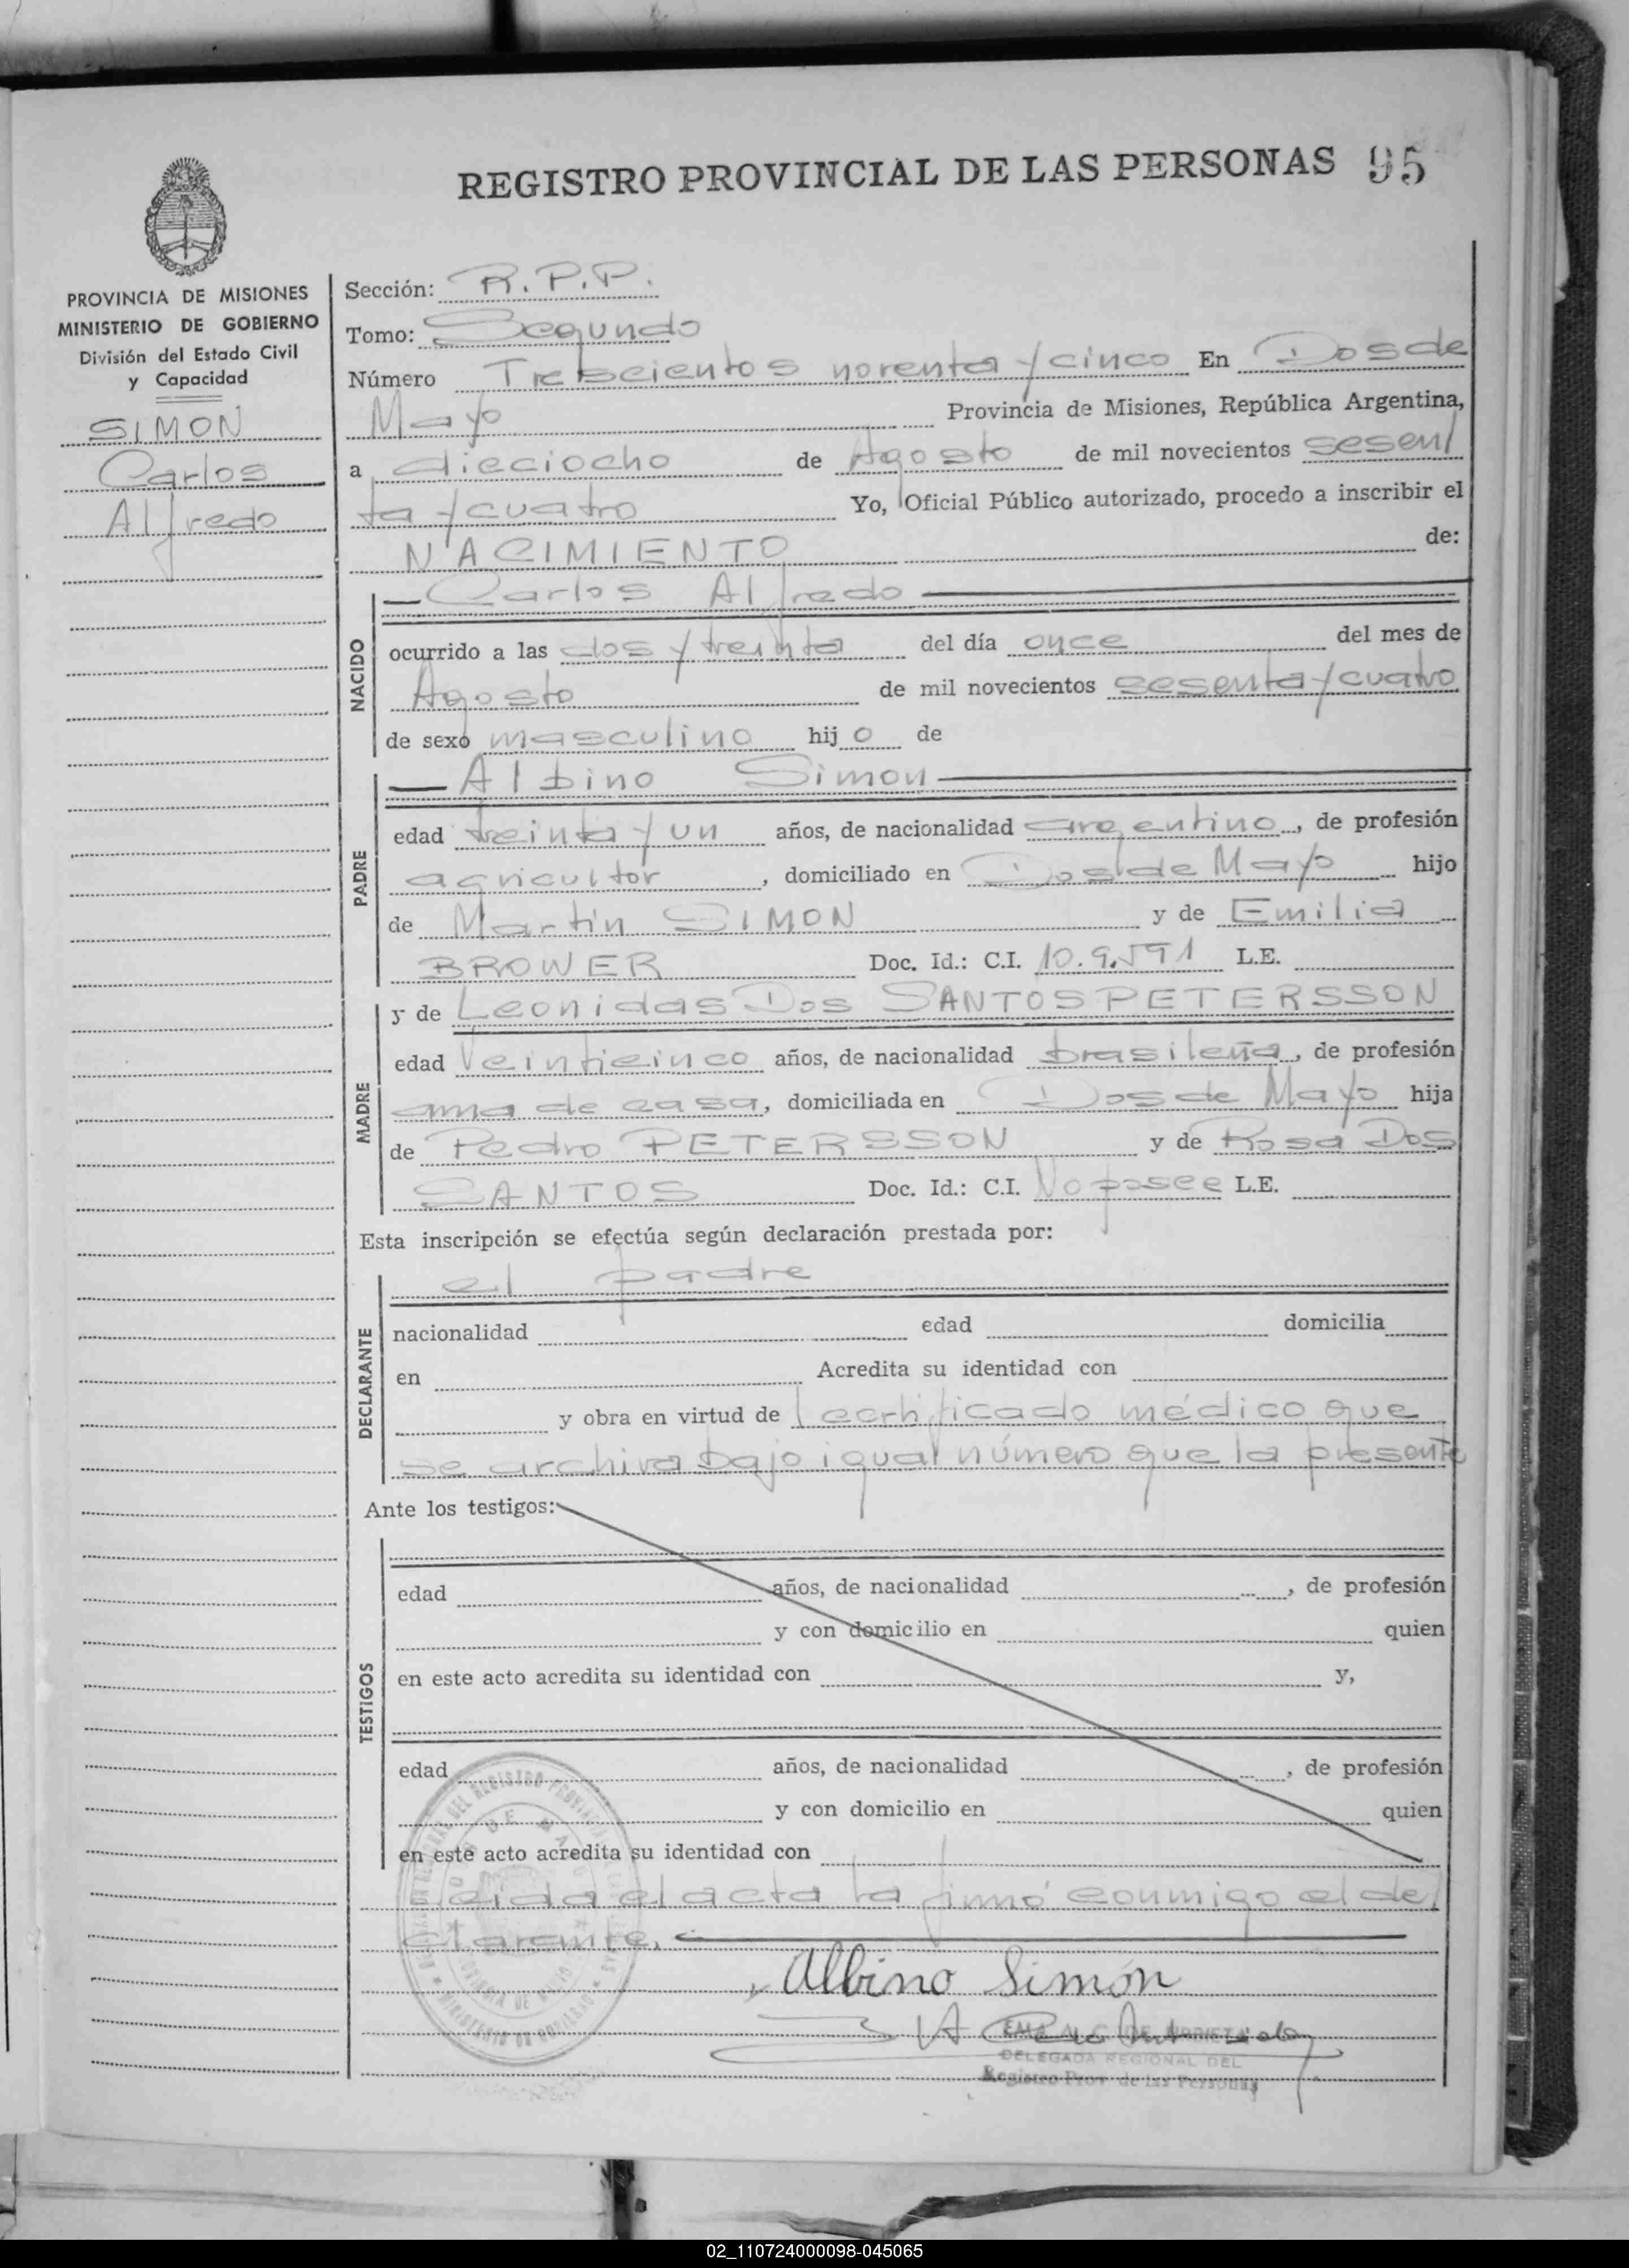 REGISTRO PROVINCIAL DE LAS PERSONAS 95
PROVINCIA DE MISIONES
MINISTERIO DE GOBIERNO
División del Estado Civil
y Capacidad
SIMON
Carlos
Alfredo
Sección: R.P.P.
Tomo: Segundo
Número Trescientos noventa y cinco En Dos de
Mayo Provincia de Misiones, República Argentina,
a dieciocho de Agosto de mil novecientos sesen/
ta y cuatro Yo, Oficial Público autorizado, procedo a inscribir el
NACIMIENTO de:
NACIDO
— Carlos Alfredo —
ocurrido a las dos y treinta del día once del mes de
Agosto de mil novecientos sesenta y cuatro
de sexo masculino hijo de
PADRE
— Albino Simon —
edad treinta y un años, de nacionalidad argentino, de profesión
agricultor, domiciliado en Dos de Mayo hijo
de Martin SIMON y de Emilia
BROWER Doc. Id.: C.I. 10.9.591 L.E.
MADRE
y de Leonidas Dos SANTOS PETERSSON
edad Veinticinco años, de nacionalidad brasileña, de profesión
ama de casa, domiciliada en Dos de Mayo hija
de Pedro PETERSSON y de Rosa Dos
SANTOS Doc. Id.: C.I. No posee L.E.
Esta inscripción se efectúa según declaración prestada por:
DECLARANTE
el padre
nacionalidad edad domicilia
en Acredita su identidad con
y obra en virtud de certificado médico que
se archiva bajo igual número que la presente
Ante los testigos:
TESTIGOS
edad años, de nacionalidad , de profesión
y con domicilio en quien
en este acto acredita su identidad con y,
edad años, de nacionalidad , de profesión
y con domicilio en quien
en este acto acredita su identidad con
Leida el acta la firmó conmigo el de/
clarante.
Albino Simón
DELEGADA REGIONAL DEL
Registro Prov. de las Personas
02_110724000098-045065